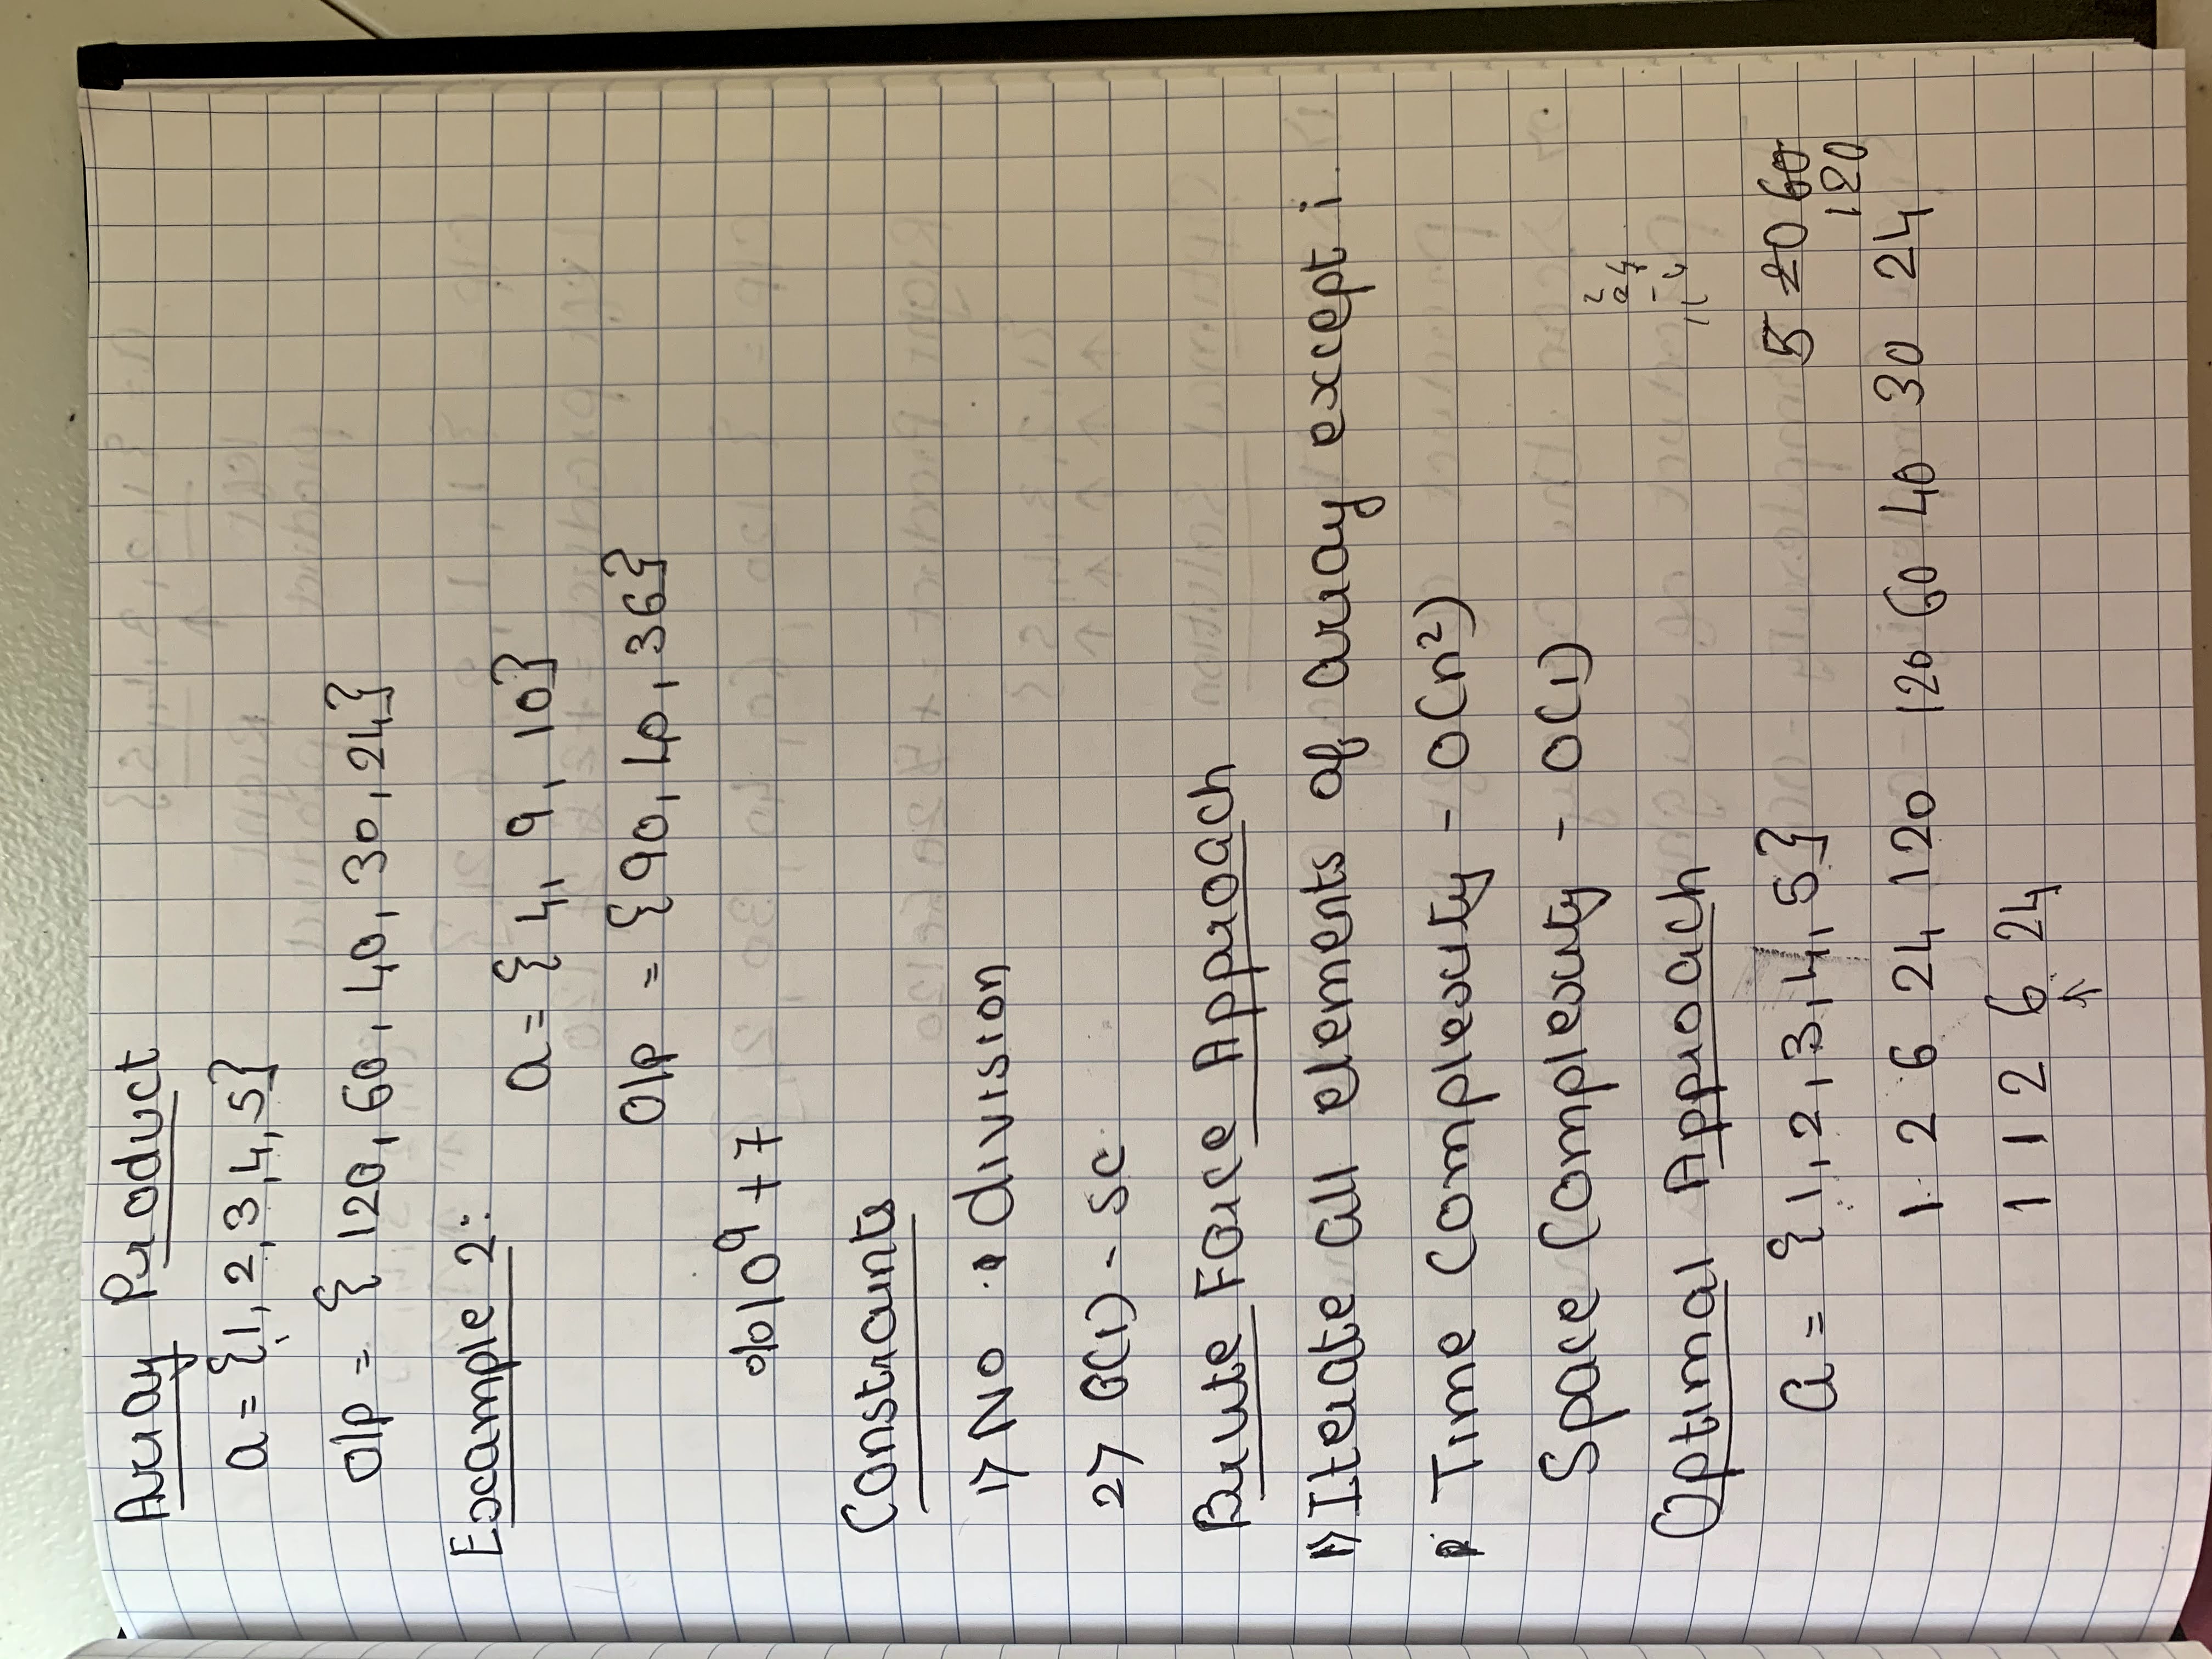 Array Product
a = {1, 2, 3, 4, 5}
O/P = { 120, 60, 40, 30, 24}
Example 2:
a = { 4, 9, 10}
O/P = {90, 40, 36}
%10⁹ + 7
Constraints
1> No division
2> O(1) - SC
Brute Force Approach
1> Iterate all elements of array except i
Time Complexity - O(n²)
Space Complexity - O(1)
Optimal Approach
a = {1, 2, 3, 4, 5}
5 20 60
120
1 2 6 24 120 120 60 40 30 24
1 1 2 6 24
↑